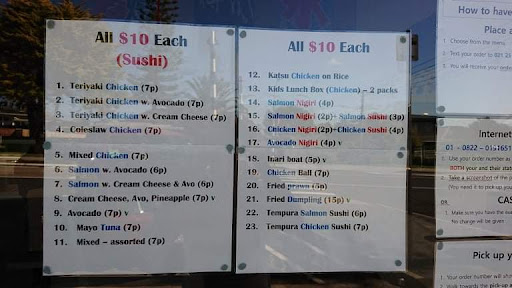 All $10 Each
(Sushi)
1. Teriyaki Chicken (7p)
2. Teriyaki Chicken w. Avocado (7p)
3. Teriyaki Chicken w. Cream Cheese (7p)
4. Coleslaw Chicken (7p)
5. Mixed Chicken (7p)
6. Salmon w. Avocado (6p)
7. Salmon w. Cream Cheese & Avo (6p)
8. Cream Cheese, Avo, Pineapple (7p) v
9. Avocado (7p) v
10. Mayo Tuna (7p)
11. Mixed – assorted (7p)
All $10 Each
12. Katsu Chicken on Rice
13. Kids Lunch Box (Chicken) – 2 packs
14. Salmon Nigiri (4p)
15. Salmon Nigiri (2p)+ Salmon Sushi (3p)
16. Chicken Nigiri(2p)+Chicken Sushi (4p)
17. Avocado Nigiri (4p) v
18. Inari boat (5p) v
19. Chicken Ball (7p)
20. Fried prawn (5p)
21. Fried Dumpling (15p) v
22. Tempura Salmon Sushi (6p)
23. Tempura Chicken Sushi (7p)
How to have
Place a
1. Choose from the menu
2. Text your order to 021
3. You will receive your
Internet
01 - 0822 -
Use your order number as
BOTH your and their stat
Take a screenshot of the
(You need it to pick up yo
CAS
1. Make sure you have the
No change will be given
Pick up y
Your order number will
Walk towards the pick-up a